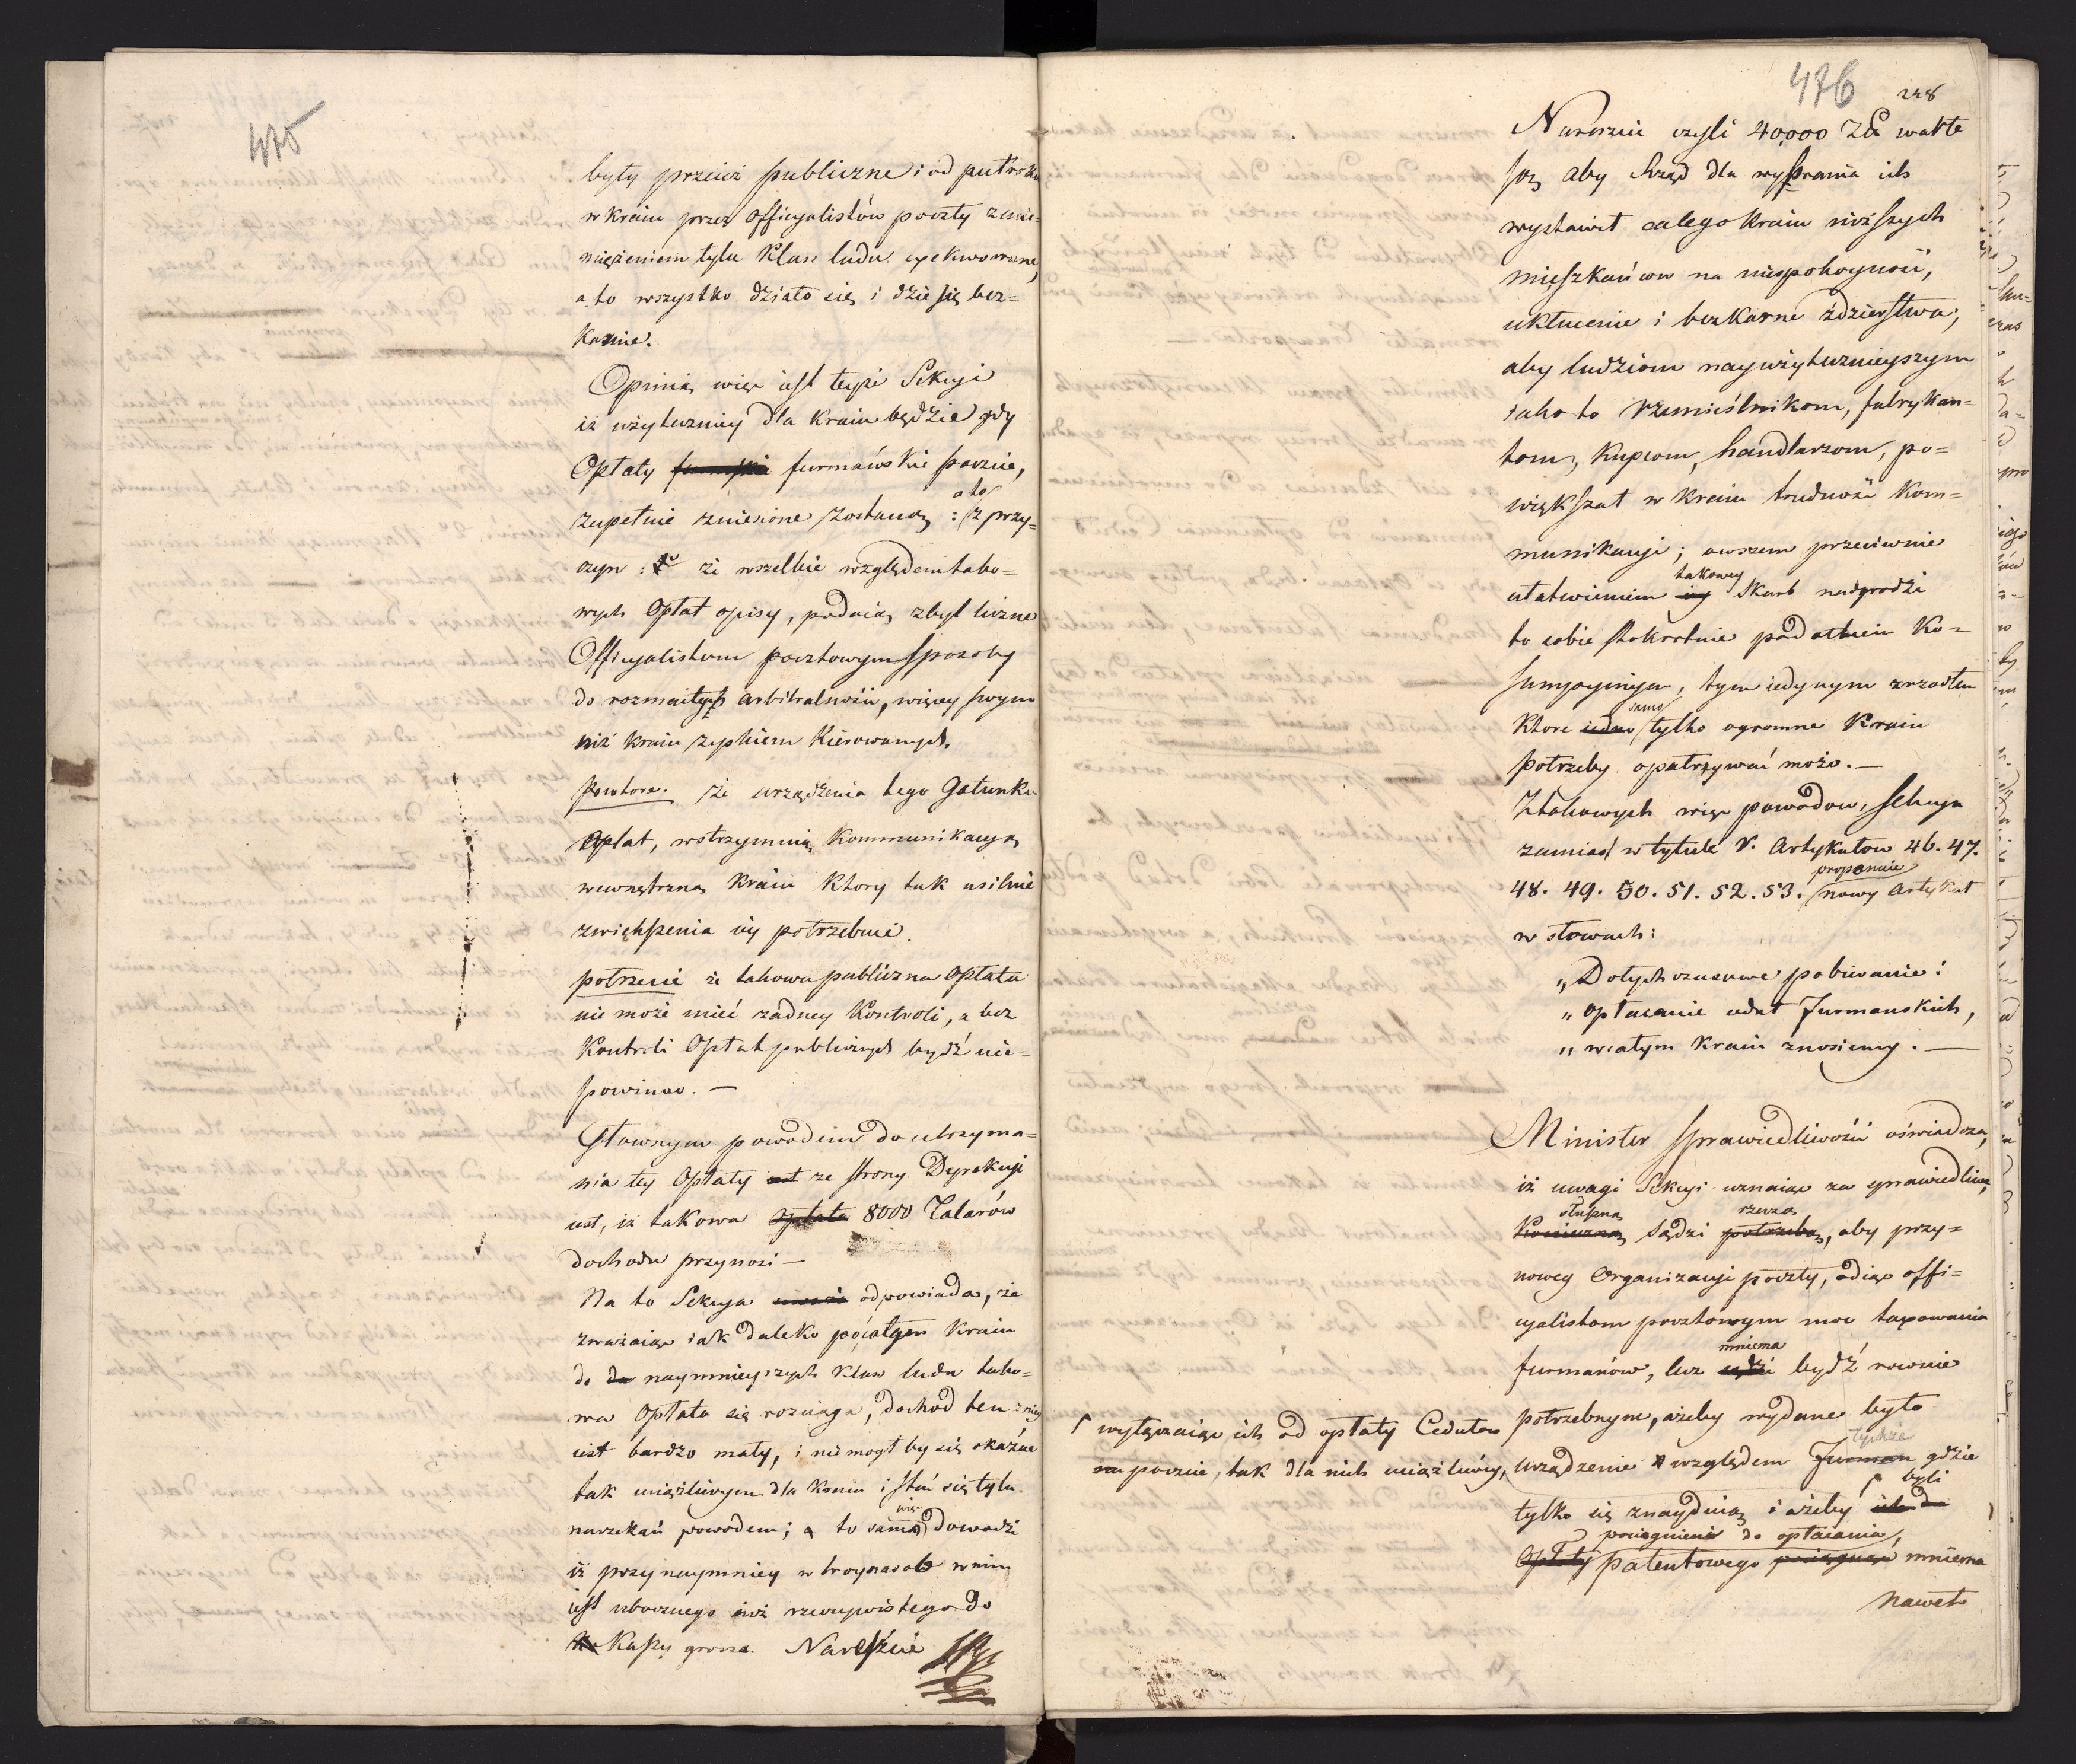 475
były przecież publiczne i od pułroku
w kraiu przez officyalistów poczty z uciе=
miężeniem tylu klass ludu exekwowane,
a to wszystko działo się i dzieie się bez=
karnie.
Opinią więc iest teyże Sekcyi
iż użyteczniey dla kraiu będzie gdy
Opłaty furmańskie poczcie,
a to
zupełnie zniesione zostaną : z przy=
czyn : 1o że wszelkie względem tako=
wych Opłat opisy, podaią zbyt liczne
Officyalistom pocztowym sposoby
do rozmaitych arbitralności, więcey swym
niż kraiu zyskiem kierowanych.
Powtore. że urządzenia tego Gatunku
Opłat, wstrzymuią kommunikacyą
wewnętrzną kraiu ktory tak usilnie
zwiększenia iey potrzebuie.
potrzecie że takowa publiczna Opłata
nie może mieć żadney Kontroli, a bez
Kontroli Opłat publicznych bydź nie=
powinno. —
Głownym powodem do utrzyma=
nia tey Opłaty ze strony Dyrekcyi
iest, iż takowa opłata 8000 Talarów
dochodu przynosi —
Na to Sekcya odpowiada, że
zważaiąc iak daleko po całym kraiu
do naymnieyszych klass ludu tako=
wa Opłata się rozciąga, dochód ten z niey
iest bardzo mały, i nie mogł by się okazać
tak uciążliwym dla kraiu i stać się tylu
więc
narzekań powodem; to samo dowodzi
iż przynaymniey w troynasob w nim
iest ubocznego niż rzeczywistego do
Kassy grosza. Nareszcie
476
248
Nareszcie czyli 40,000 Zł warte
są, aby Rząd dla wyssania ich
wystawił całego kraiu niższych
mieszkańcow na niespokoyność,
ukłucenie i bezkarne zdzierstwa;
aby ludziom nayużytecznieyszym
iako to rzemieślnikom, fabrykan=
tom, kupcom, handlarzom, po=
większał w kraiu trudność kom=
munikacyi; owszem przeciwnie
takowey
ułatwieniem iey Skarb nadgrodzi
to sobie stokrotnie podatkiem kon=
sumpcyinym, tym iedynym zrzodłem
samo
ktore iedno tylko ogromne kraiu
potrzeby opatrzywać może. —
Z takowych więc powodow, Sekcya
zamiast w tytule V. Artykułow 46. 47.
proponuie
48. 49. 50. 51. 52. 53. nowy Artykuł
w słowach:
„ Dotychczasowe pobieranie i
„ opłacanie cedut Furmanskich,
„ w całym kraiu znosiemy. —
Minister Sprawiedliwości oświadcza,
iż uwagi Sekcyi uznaiąc za sprawiedliwe,
słuszną rzeczą
Konieczną sądzi potrzebą, aby przy=
nowey Organizacyi poczty, odiąć offi=
cyalistom pocztowym moc taxowania
mniema
furmanów, lecz sądzi bydź rownie
potrzebnym, ażeby wydane było
tychże
urządzenie względem Furman gdzie
byli
tylko się znayduią i ażeby
pociągnieni do opłacania
Opłaty patentowego pociągnąć mniema
nawet
⌈ wyłączaiąc ich od opłaty Cedułow
na poczcie, tak dla nich uciążliwey,